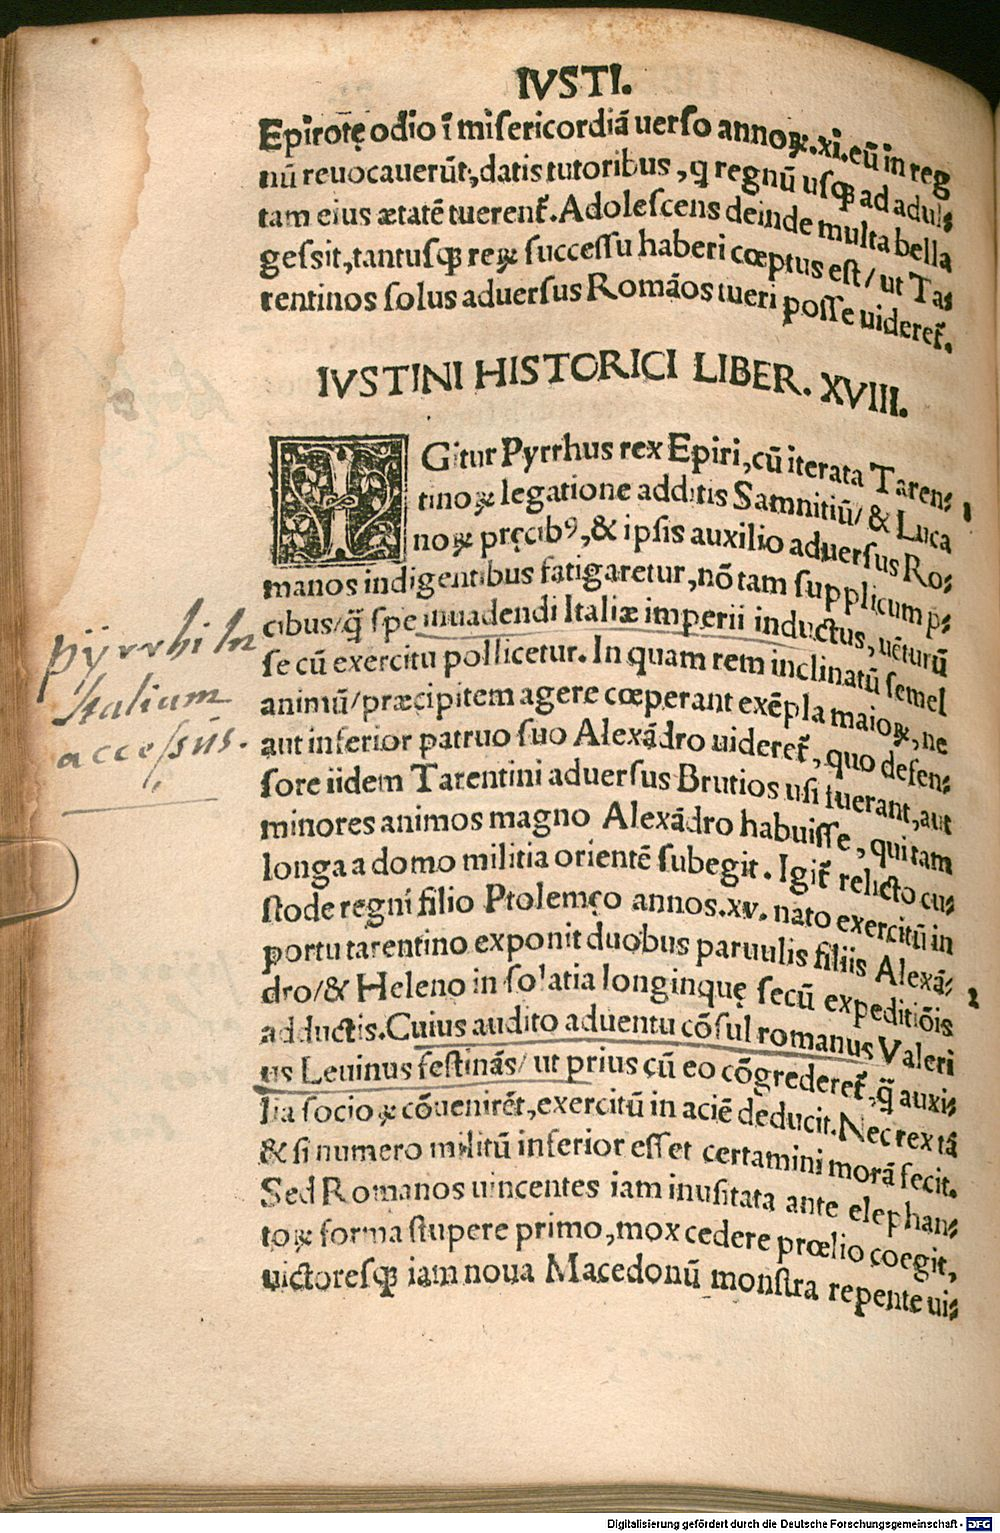 IVSTI.
Epirotę odio ī misericordiā uerso annoꝝ.xi.eū in reg
nū reuocauerūt,datis tutoribus, q regnū usqꝫ ad adul⸗
tam eius ætatē tuerent᷑.Adolescens deinde multa bella
gessit,tantusqꝫ reꝝ successu haberi cœptus est/ut Ta⸗
rentinos solus aduersus Romāos tueri posse uideret᷑.
IVSTINI HISTORICI LIBER. XVIII.
IGitur Pyrrhus rex Epiri,cū iterata Taren⸗
tinoꝝ legatione additis Samnitiū/ & Luca
noꝝ pręcibꝰ,& ipsis auxilio aduersus Ro⸗
manos indigentibus fatigaretur,nō tam supplicum p⸗
cibus/q̃ spe inuadendi Italiæ imperii inductus, uēturū
se cū exercitu pollicetur. In quam rem inclinatū semel
animū/præcipitem agere cœperant exēpla maioꝝ, ne
aut inferior patruo suo Alexādro uideret᷑, quo defen⸗
sore iidem Tarentini aduersus Brutios usi fuerant,aut
minores animos magno Alexādro habuisse, qui tam
longa a domo militia orientē subegit. Igit᷑ relicto cu⸗
stode regni filio Ptolemęo annos.xv. nato exercitū in
portu tarentino exponit duobus paruulis filiis Alexā⸗
dro/& Heleno in solatia longinquę secū expeditiōis
adductis.Cuius audito aduentu cōsul romanus Valeri
us Leuinus festinās/ ut prius cū eo cōgrederet᷑,q̃ auxi⸗
lia socioꝝ cōuenirēt,exercitū in aciē deducit.Nec rex tā
& si numero militū inferior esset certamini morā fecit.
Sed Romanos uincentes iam inusitata ante elephan⸗
toꝝ forma stupere primo,mox cedere prœlio coegit,
uictoresqꝫ iam noua Macedonū monstra repente ui⸗
pÿrrhi In
Italium
accessus.
1
2
Digitalisierung gefördert durch die Deutsche Forschungsgemeinschaft - DFG